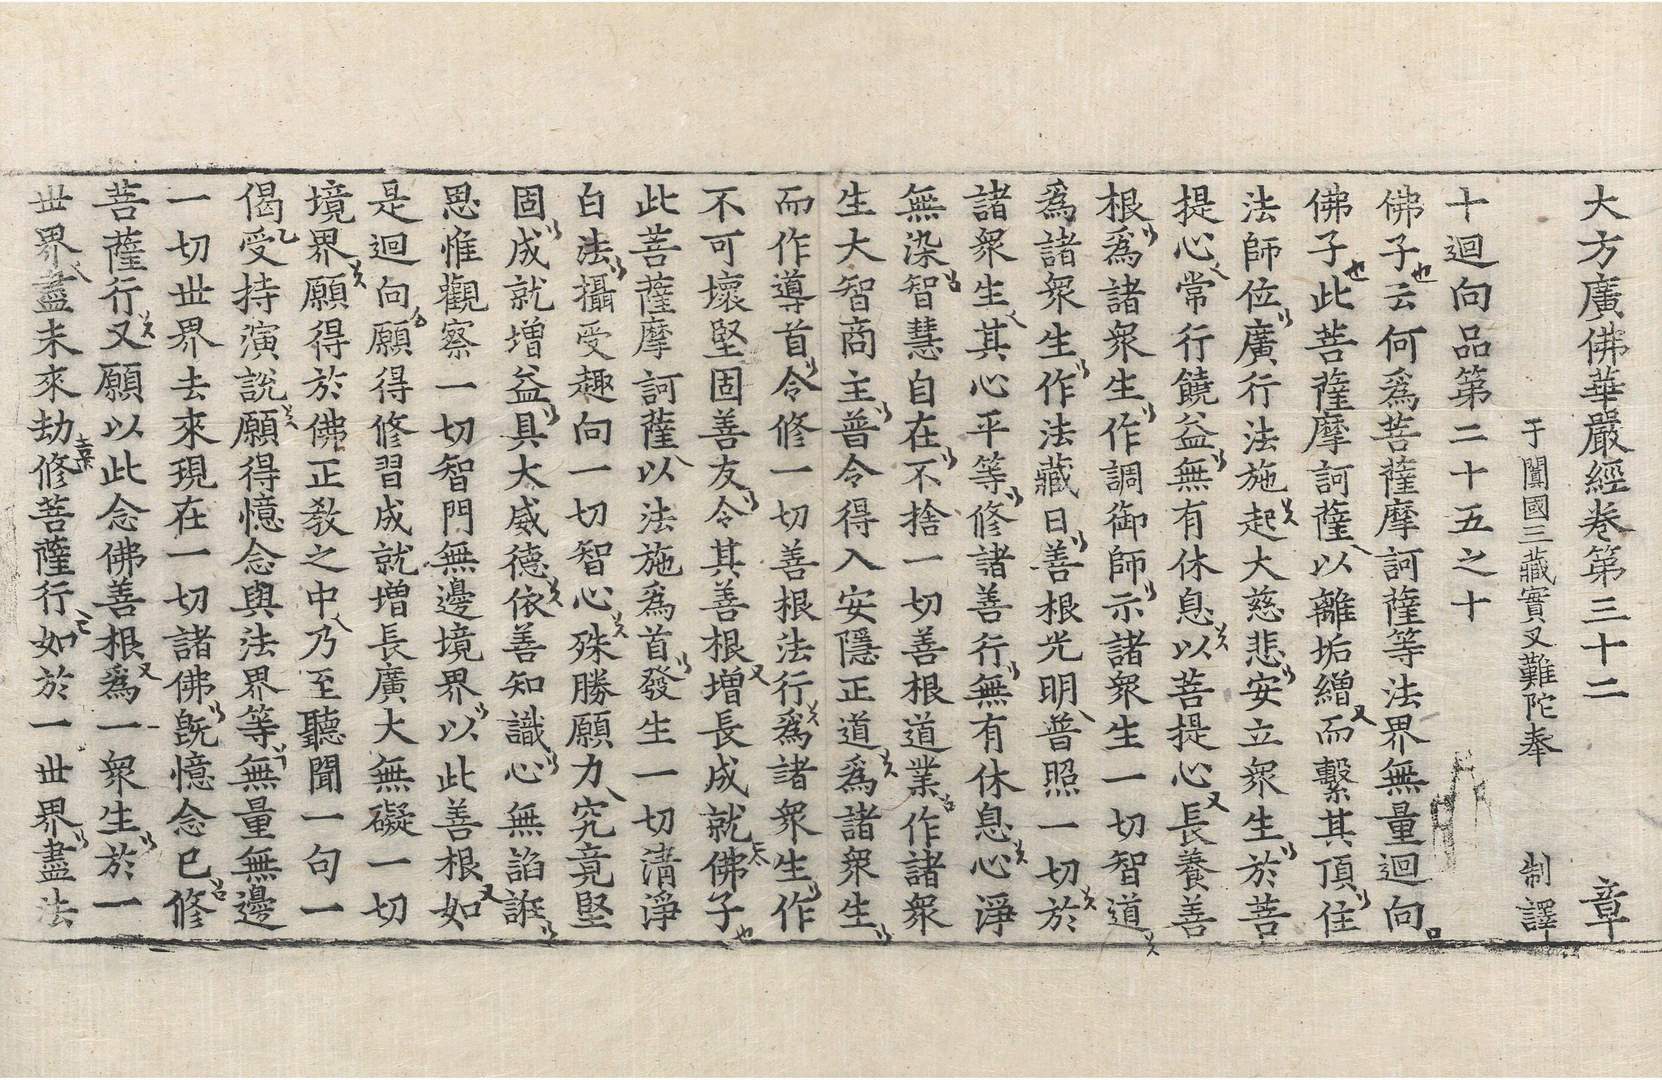 大方廣佛華嚴經卷第三十二 章
于闐國三藏實叉難陀奉 制譯
十迴向品第二十五之十
佛子云何爲菩薩摩訶薩等法界無量迴向
佛子此菩薩摩訶薩以離垢繒而繫其頂住
法師位廣行法施起大慈悲安立衆生於菩
提心常行饒益無有休息以菩提心長養善
根爲諸衆生作調御師示諸衆生一切智道
爲諸衆生作法藏日善根光明普照一切於
諸衆生其心平等修諸善行無有休息心淨
無染智慧自在不捨一切善根道業作諸衆
生大智商主普令得入安隱正道爲諸衆生
而作導首令修一切善根法行爲諸衆生作
不可壞堅固善友令其善根增長成就佛子
此菩薩摩訶薩以法施爲首發生一切淸淨
白法攝受趣向一切智心殊勝願力究竟堅
固成就增益具大威德依善知識心無諂誑
思惟觀察一切智門無邊境界以此善根如
是迴向願得修習成就增長廣大無礙一切
境界願得於佛正敎之中乃至聽聞一句一
偈受持演說願得憶念與法界等無量無邊
一切世界去來現在一切諸佛旣憶念已修
菩薩行又願以此念佛善根爲一衆生於一
世界盡未來劫修菩薩行如於一世界盡法